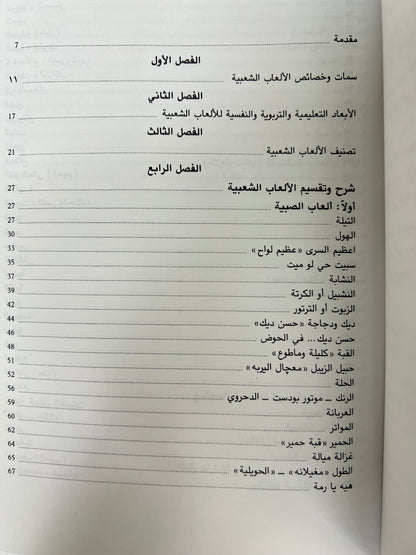 مقدمة 7
الفصل الأول
سمات وخصائص الألعاب الشعبية 11
الفصل الثاني
الأبعاد التعليمية والتربوية والنفسية للألعاب الشعبية 17
الفصل الثالث
تصنيف الألعاب الشعبية 21
الفصل الرابع
شرح وتقسيم الألعاب الشعبية 27
أولاً: ألعاب الصبية 27
التيلة 27
الهول 30
اعظيم السرى «عظيم لواح» 33
سبيت حي لو ميت 35
النشابة 37
التشبيل أو الكرتة 39
الزبوت أو الترتور 42
ديك ودجاجة «حسن ديك» 44
حسن ديك... في الحوض 46
القبة «كليلة وماطوع» 48
حبيل الزيبل «معچال اليربه» 51
الحلة 52
الرنك ــ موتور بودست ــ الدحروي 56
العربانة 59
المواتر 60
الحمير «قبة حمير» 62
غزالة ميالة 64
الطول «مغيلانه» ــ «الحويلية» 65
هيه يا رمة 67